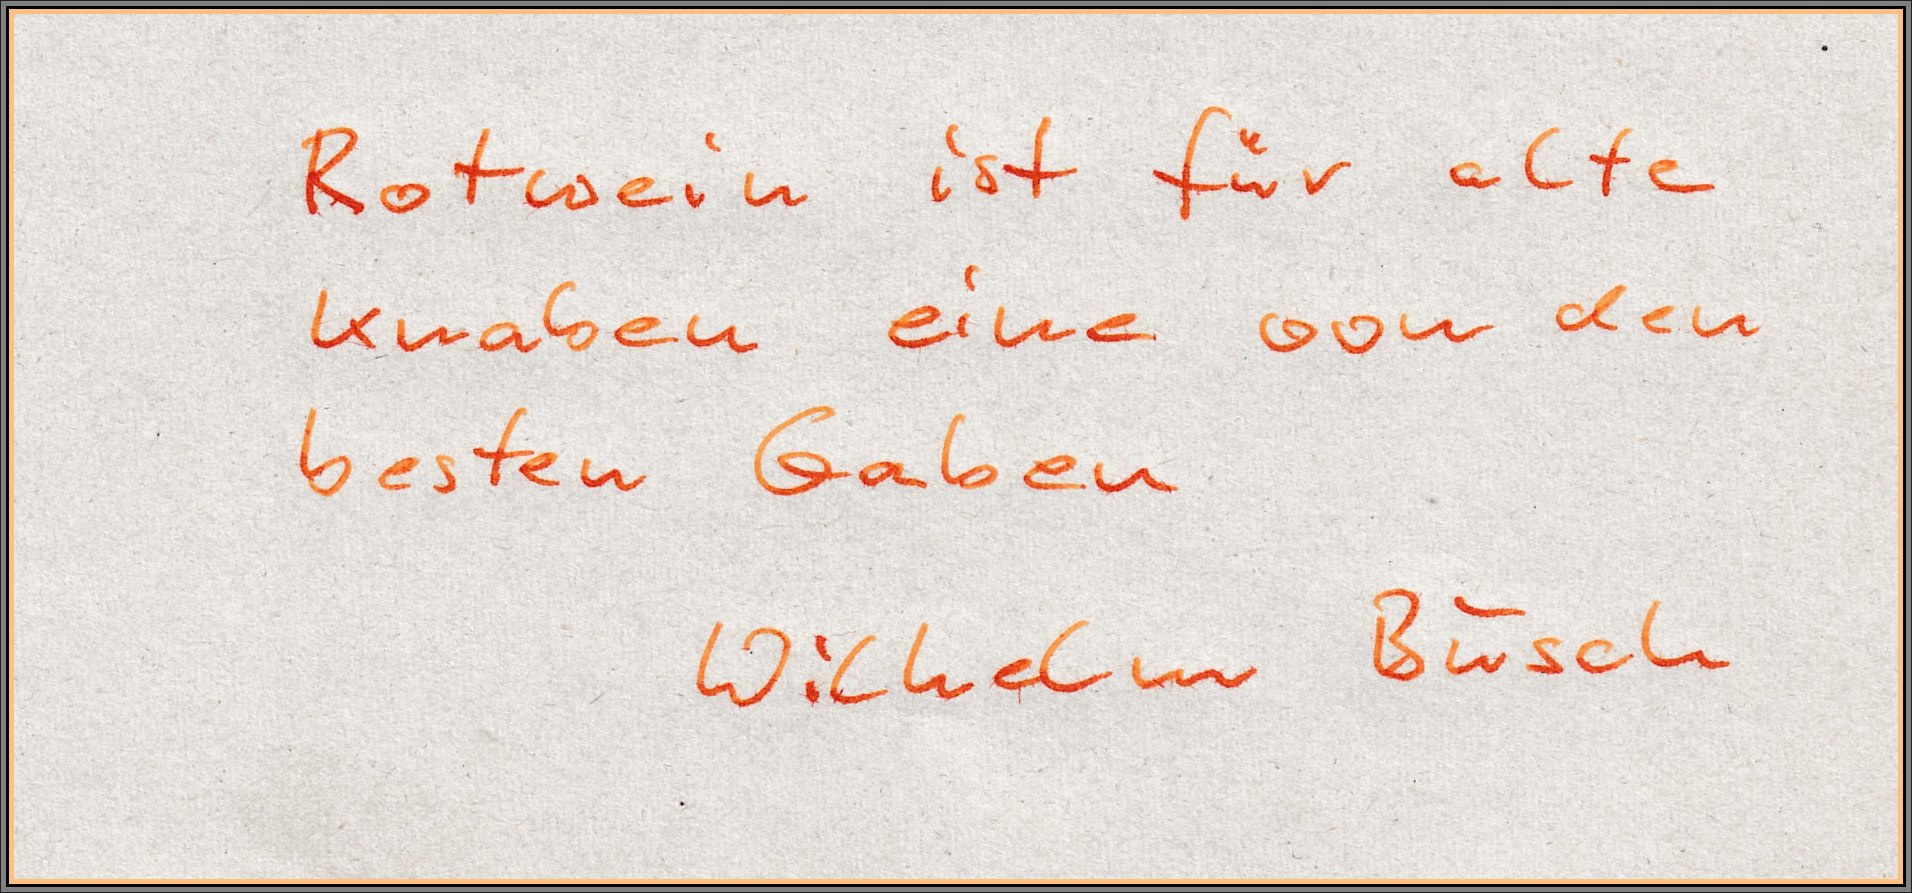 Rotwein ist für alte
Knaben eine von den
besten Gaben
Wilhelm Busch